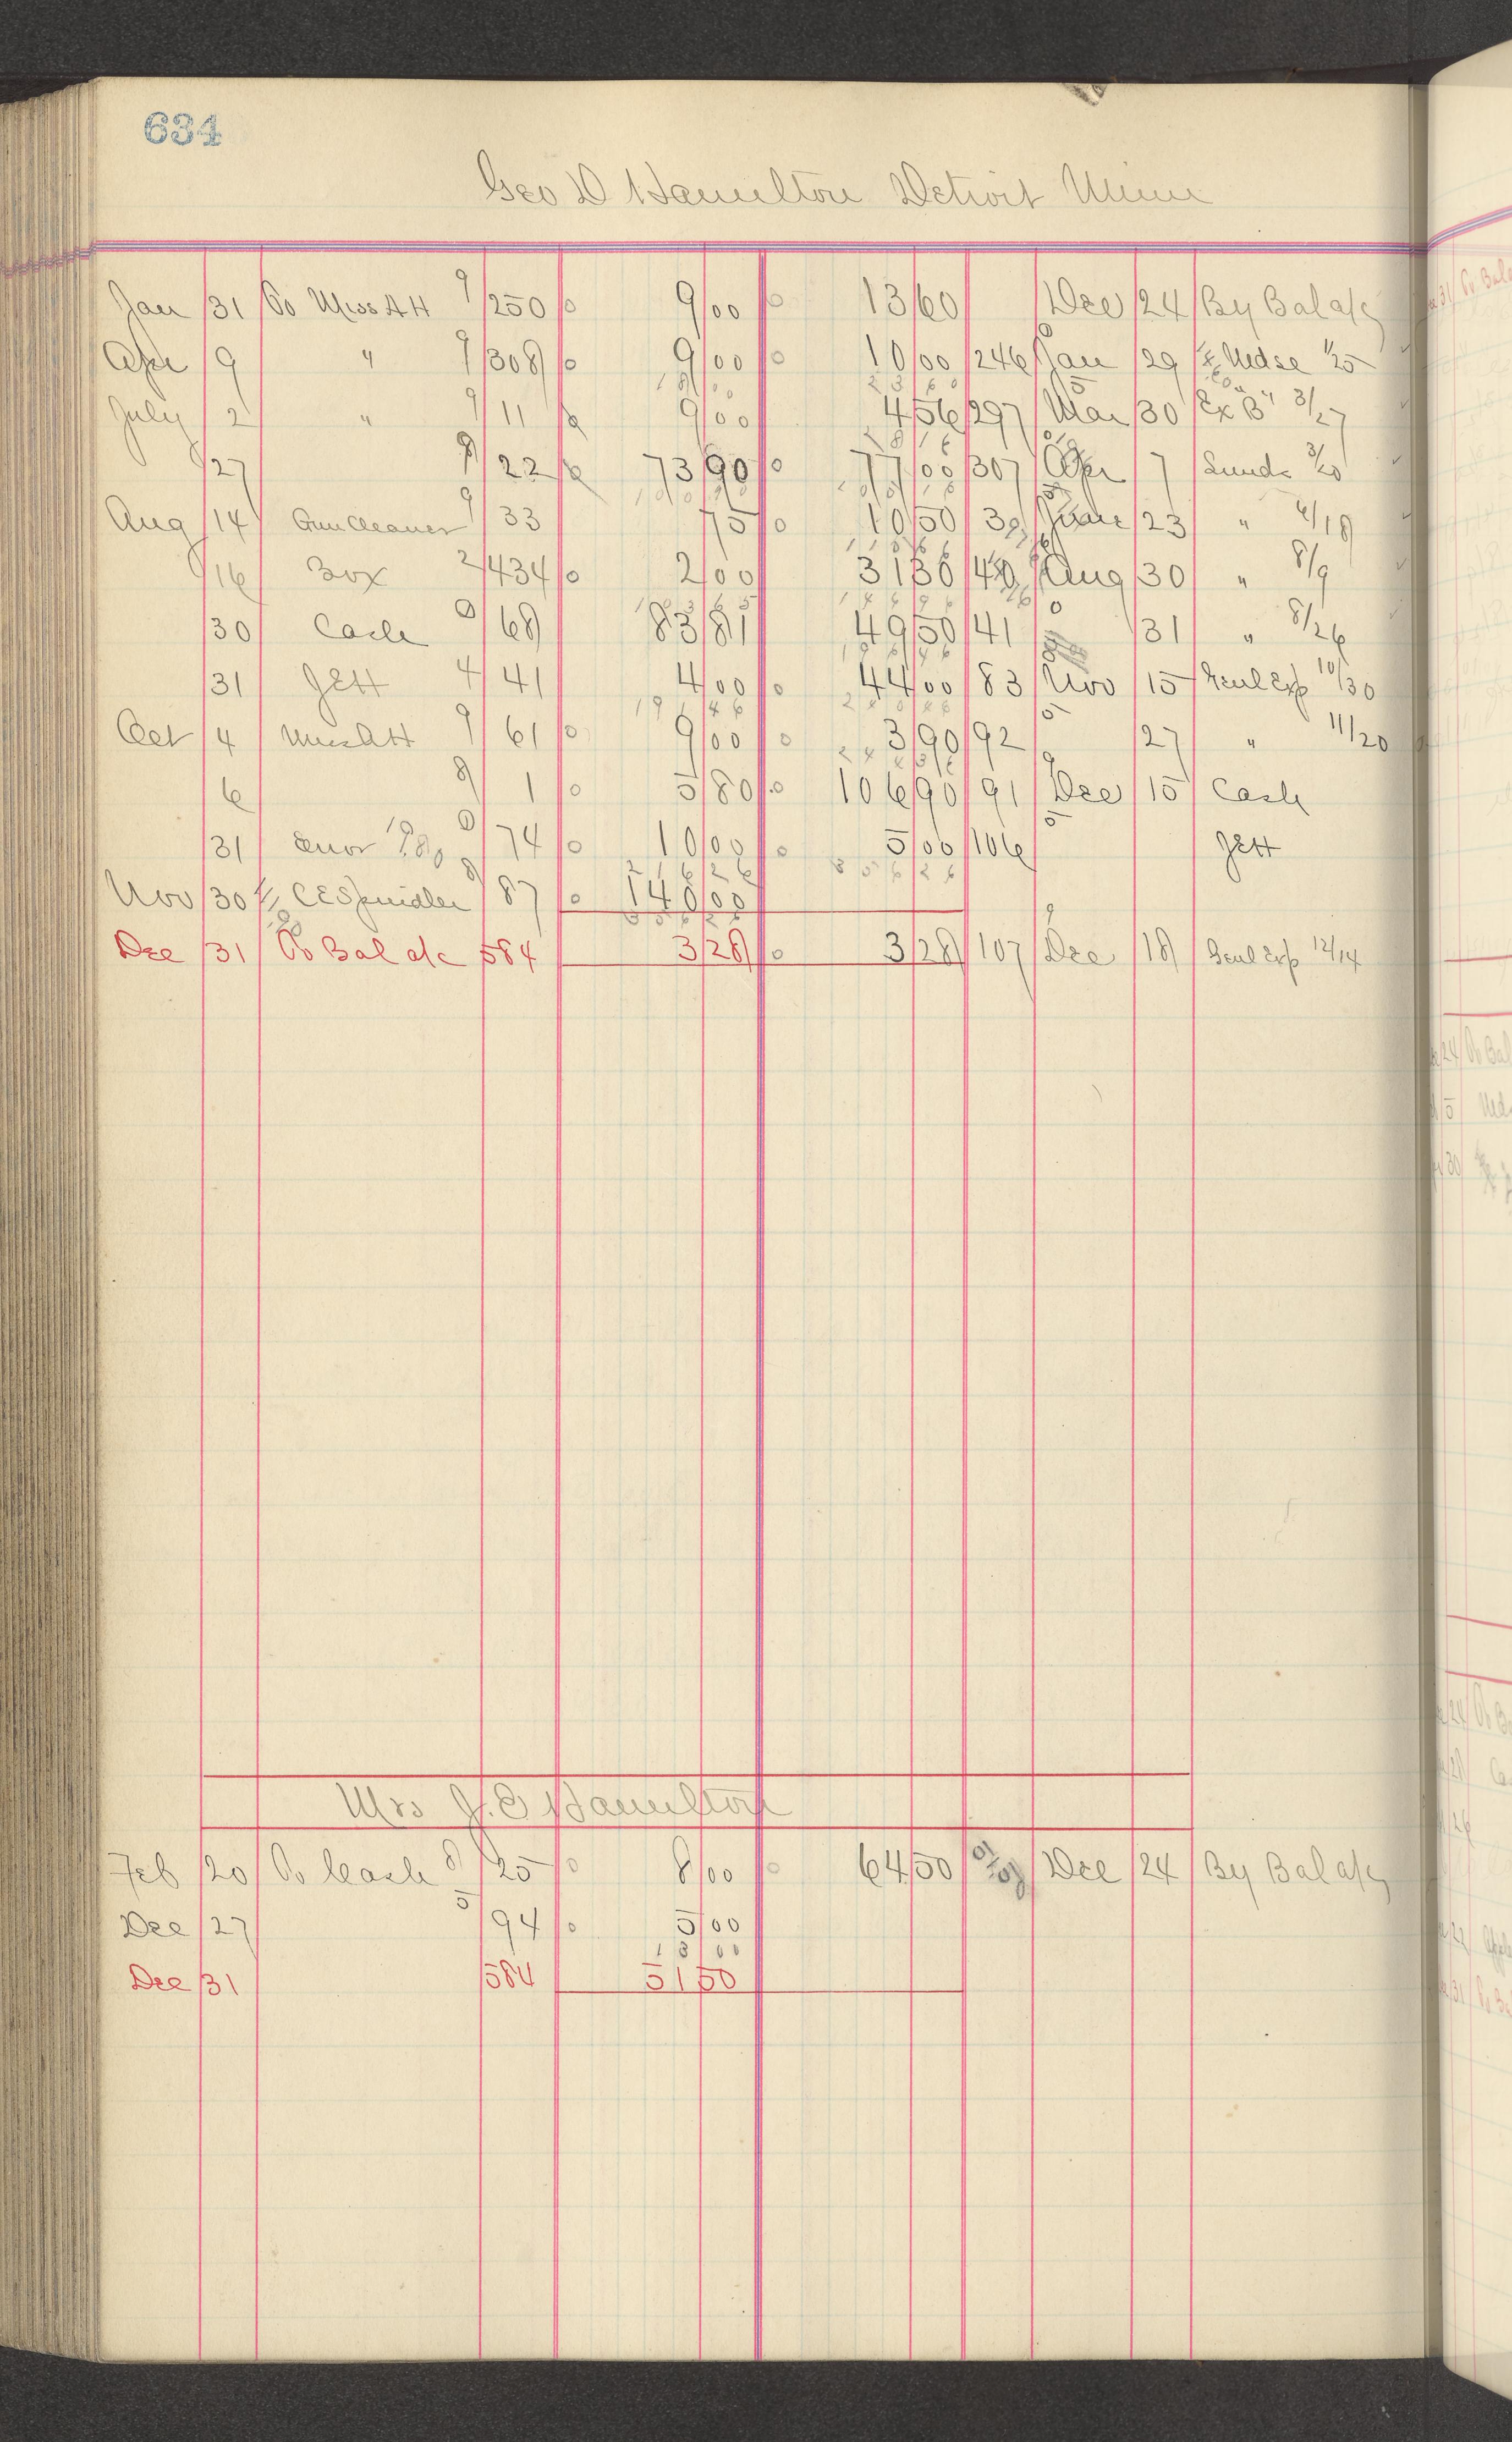 634
Geo D Hamilton Detroit Minn
Jan 31 To Miss A H 9/250 9 00 13 60 Dec 24 By Bal a/c
Apr 9 " 9/308 9 00 10 00 246 Jan 29 Mdse 1/25
18 00 23 60
July 2 " 9/11 9 00 4 56 297 Mar 30 Ex B" 3/27
28 16
27 9/22 73 90 77 00 307 Apr 7 Sunds 3/20
Aug 14 Gun Cleaner 9/33 75 10 50 June 23 " 6/18
16 Box 2/434 2 00 31 30 Aug 30 " 8/9
30 Cash 0/68 83 81 49 50 41 31 " 8/26
31 Jett 4/41 4 00 44 00 83 Nov 15 Genl Exp 10/30
Oct 4 Miss A H 9/61 9 00 3 90 92 27 " 11/20
6 8/1 5 80 106 90 91 Dec 15 Cash
31 Error 0/74 10 00 5 00 106 Jett
216 26 355 26
Nov 30 C E Spindler 8/87 140 00
Dec 31 To Bal a/c 584 3 28 3 28 107 Dec 18 Genl Exp 12/14
Mrs J. E Hamilton
Feb 20 To Cash 25 8 00 64 50 Dec 24 By Bal a/c
Dec 27 5/94 5 00
13 00
Dec 31 584 51 50